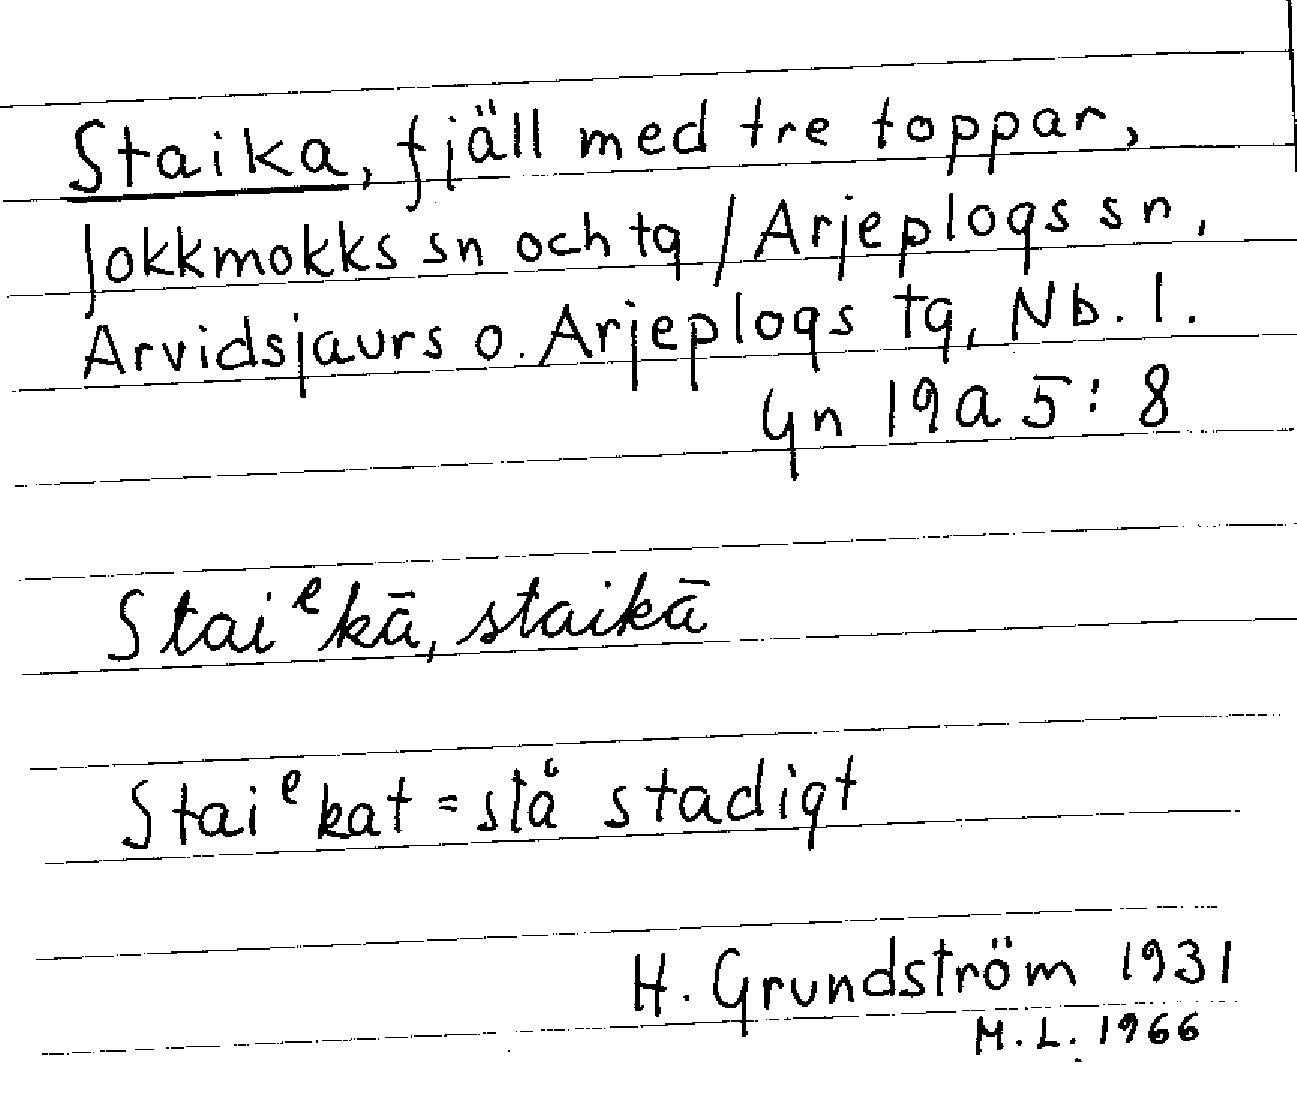 Staika, fjäll med tre toppar,
Jokkmokks sn och tg / Arjeplogs sn,
Arvidsjaurs o. Arjeplogs tg, Nb. l.
Gn 19a 5:8
Staiᵉkā, staikā
Staiᵉkat = stå stadigt
H. Grundström 1931
M.L. 1966